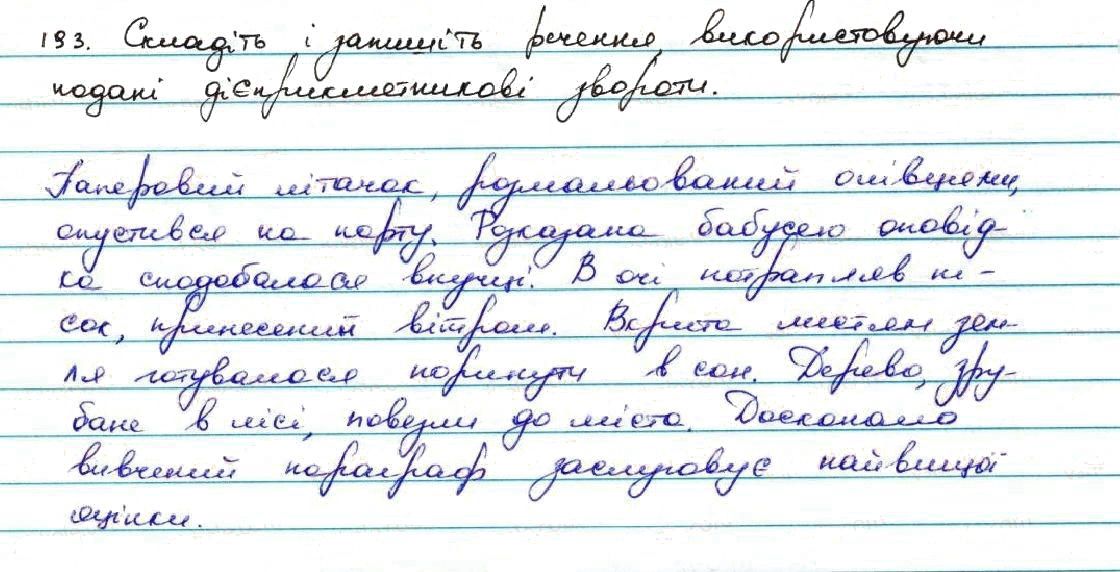 193. Складіть і запишіть речення, використовуючи
подані дієприкметникові звороти.
Паперовий літачок, розмальований олівцями,
опустився на парту. Розказана бабусею оповід-
ка сподобалася внучці. В очі потрапляв пі-
сок, принесений вітром. Вкрита листям зем-
ля готувалася поринути в сон. Дерево, зру-
бане в лісі, повезли до міста. Досконало
вивчений параграф заслуговує найвищої
оцінки.